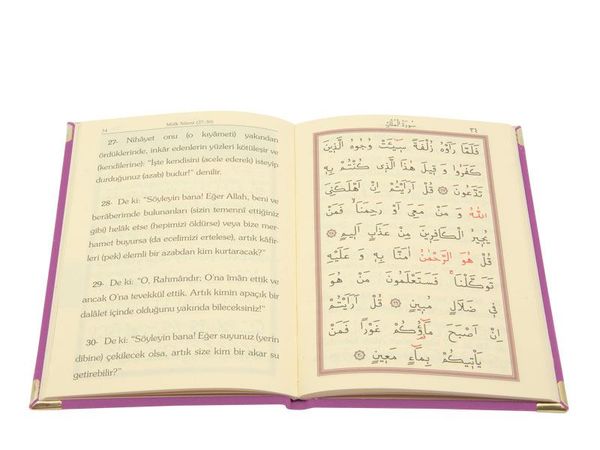 34
Mülk Sûresi (27-30)
27- Nihâyet onu (o kıyameti) yakından
gördüklerinde, inkâr edenlerin yüzleri kötüleşir ve
(kendilerine): “İşte kendisini (acele ederek) isteyip
durduğunuz (azab) budur!” denilir.
28- De ki: “Söyleyin bana! Eğer Allah, beni ve
berâberimde bulunanları (sizin temennî ettiğiniz
gibi) helâk etse (hepimizi öldürse) veya bize mer-
hamet buyursa (da ecelimizi ertelese), artık kâfir-
leri (pek) elemli bir azabdan kim kurtaracak?”
29- De ki: “O, Rahmândır; O'na îman ettik ve
ancak O'na tevekkül ettik. Artık kimin apaçık bir
dalâlet içinde olduğunu yakında bileceksiniz!”
30- De ki: “Söyleyin bana! Eğer suyunuz (yerin
dibine) çekilecek olsa, artık size kim bir akar su
getirebilir?”
سُورَةُ الْمُلْكِ
٣٤
فَلَمَّا رَاَوْهُ زُلْفَةً سٖٓيـَٔتْ وُجُوهُ الَّذٖينَ
كَفَرُوا وَ قٖيلَ هٰذَا الَّذٖى كُنْتُمْ بِهٖ
تَدَّعُونَ ۝ قُلْ اَرَاَيْتُمْ اِنْ اَهْلَكَنِىَ
اللّٰهُ وَ مَنْ مَعِىَ اَوْ رَحِمَنَا ۙ فَمَنْ
يُجٖيرُ الْكَافِرٖينَ مِنْ عَذَابٍ اَلٖيمٍ ۝
قُلْ هُوَ الرَّحْمٰنُ اٰمَنَّا بِهٖ وَ عَلَيْهِ
تَوَكَّلْنَا ۚ فَسَتَعْلَمُونَ مَنْ هُوَ
فٖى ضَلَالٍ مُبٖينٍ ۝ قُلْ اَرَاَيْتُمْ
اِنْ اَصْبَحَ مَٓاؤُكُمْ غَوْرًا فَمَنْ
يَاْتٖيكُمْ بِمَٓاءٍ مَعٖينٍ ۝